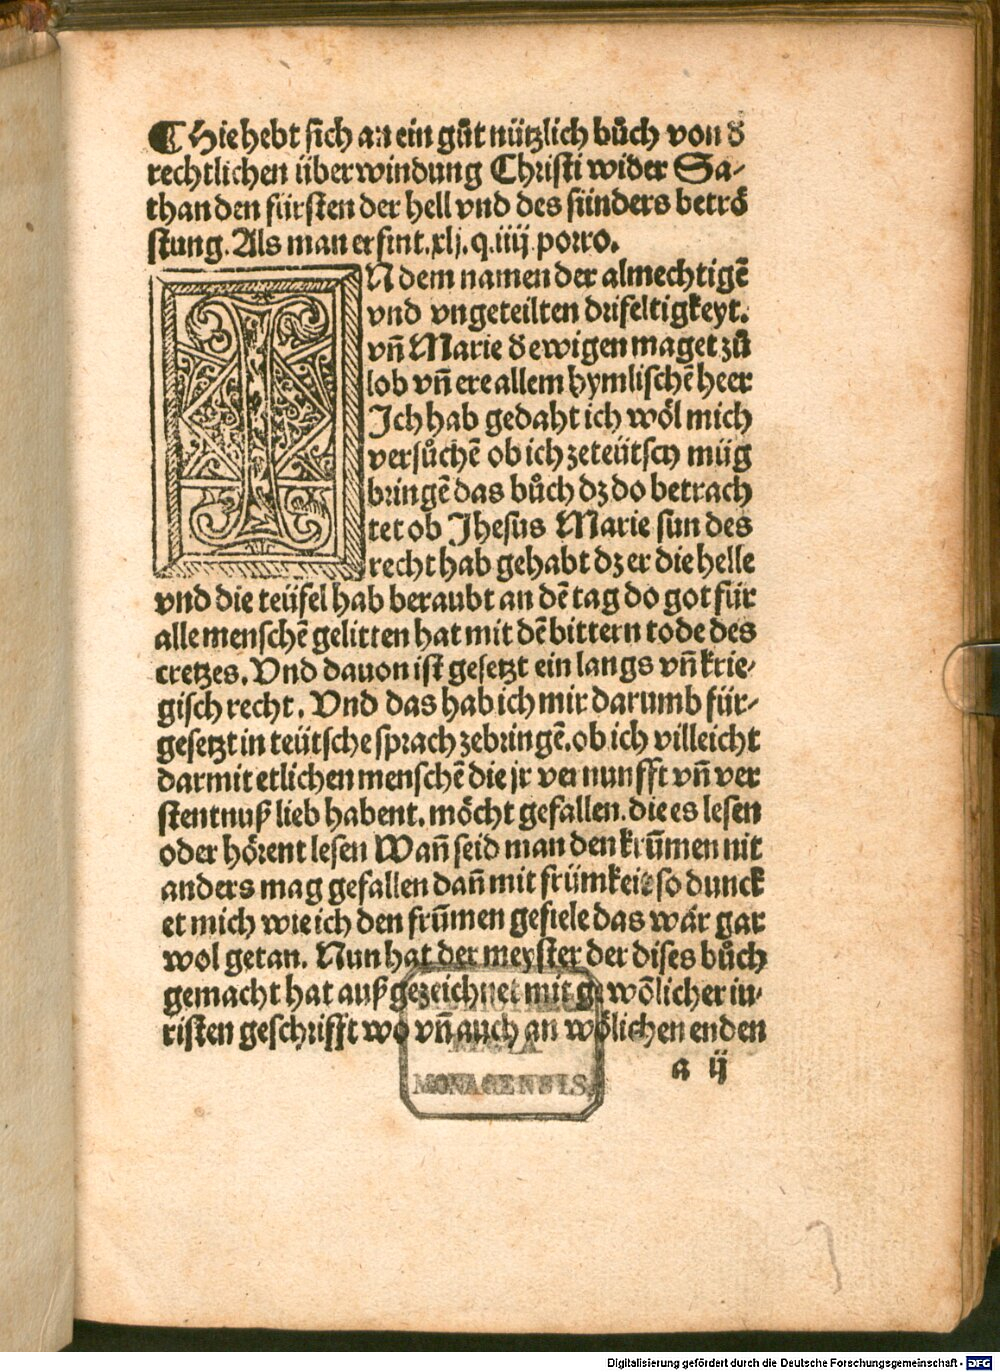 ¶ Hie hebt sich an ein gůt nützlich bůch von d̕
rechtlichen überwindung Christi wider Sa-
than den fürsten der hell vnd des sünders betrö
stung. Als man er fint. xlj. q. iiij. porro.
IN dem namen der almechtigē
vnd vngeteilten drifeltigkeyt.
vn̄ Marie d̕ ewigen maget zů
lob vn̄ ere allem hymlischē heer
Ich hab gedaht ich wöl mich
versůchē ob ich zeteütsch müg
bringē das bůch dz do betrach
tet ob Jhesus Marie sun des
recht hab gehabt dz er die helle
vnd die teüfel hab beraubt an dē tag do got für
alle menschē gelitten hat mit dē bittern tode des
cretzes. Vnd dauon ist gesetzt ein langs vn̄ krie-
gisch recht. Vnd das hab ich mir darumb für-
gesetzt in teütsche sprach zebringē. ob ich villeicht
darmit etlichen menschē die jr vernunfft vn̄ ver
stentnuß lieb habent. möcht gefallen. die es lesen
oder hörent lesen Wan̄ seid man den frūmen nit
anders mag gefallen dan̄ mit frümkeit so dunck
et mich wie ich den frūmen gefiele das wär gar
wol getan. Nun hat der meyster der dises bůch
gemacht hat auß gezeichnet mit gewölicher iu-
risten geschrifft wo vn̄ auch an wölichen enden
a ij
REGIA
MONACENSIS
Digitalisierung gefördert durch die Deutsche Forschungsgemeinschaft - DFG